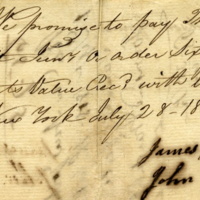 We promise to pay Th
t Junr or order Six
ts Value Recd with
New York July 28-18
James
John